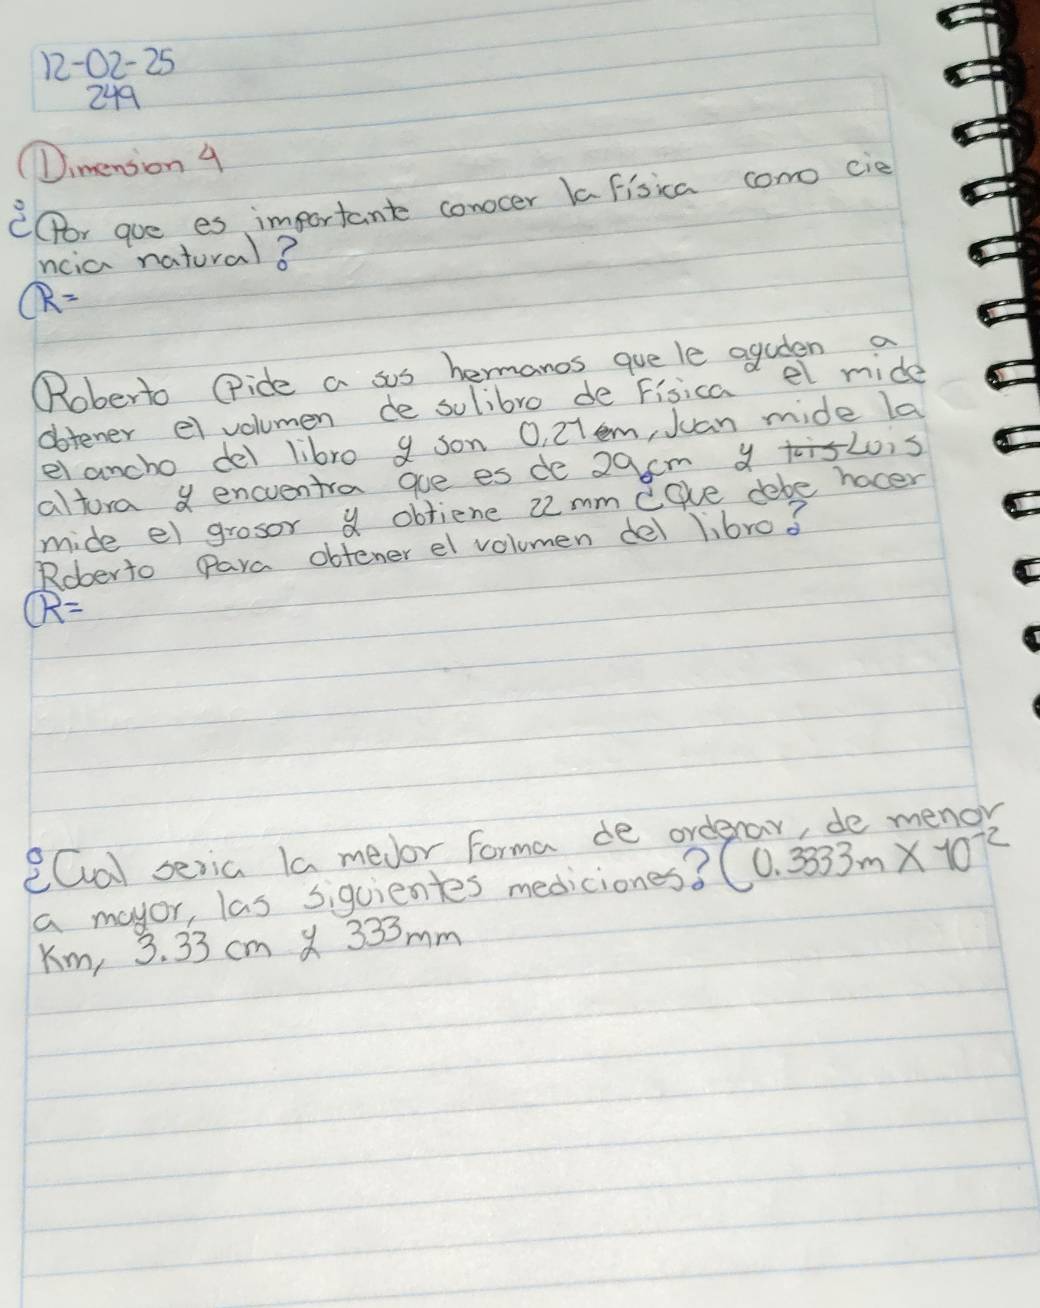 12-02-25
249
Dimension 4
¿Por que es importante conocer la Física como cie
ncia natural?
R=
Roberto Pide a sus hermanos que le ayuden a
obtener el volumen de su libro de Física el mide
el ancho del libro y son 0,21 m, Juan mide la
altura y encuentra que es de 29 cm y Luis
mide el grosor y obtiene 22 mm ¿Que debe hacer
Roberto Para obtener el volumen del libro?
R=
¿Cual seria la meJor Forma de ordenar, de menor
a mayor, las siguientes mediciones? (0.3333m X 10⁻²
Km, 3.33 cm y 333mm